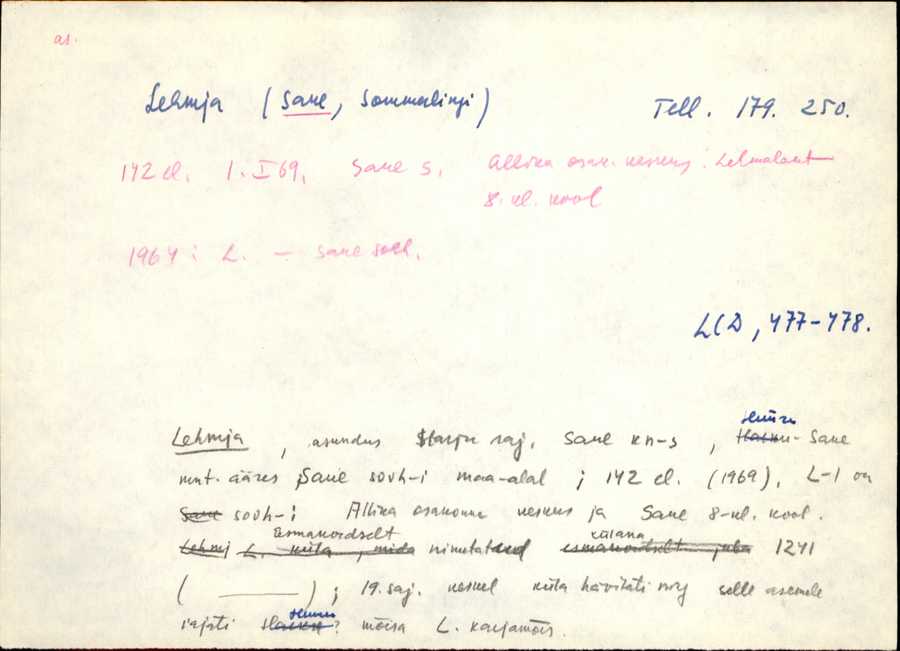 as.
Lehmja (Saue, Sommerlingi) Tell. 179. 250.
142 el. 1. I 69. Saue s. Allika osak. keskus. Lehmalaut
8-kl. kool
1964: L. — Saue sovh.
LCD, 477-478.
Lehmja, asundus Harju raj. Saue kn-s, Hüüru - Saue
mnt. ääres Saue sovh-i maa-alal; 142 el. (1969). L-l on
Saue sovh-i Allika osakonna keskus ja Saue 8-kl. kool.
esmakordselt külana
Lehmj L. küla, mida nimetatud esmakordselt juba 1241
( ——— ); 19. saj. keskel küla hävitati ning selle asemele
rajati Hüüru? mõisa L. karjamõis.